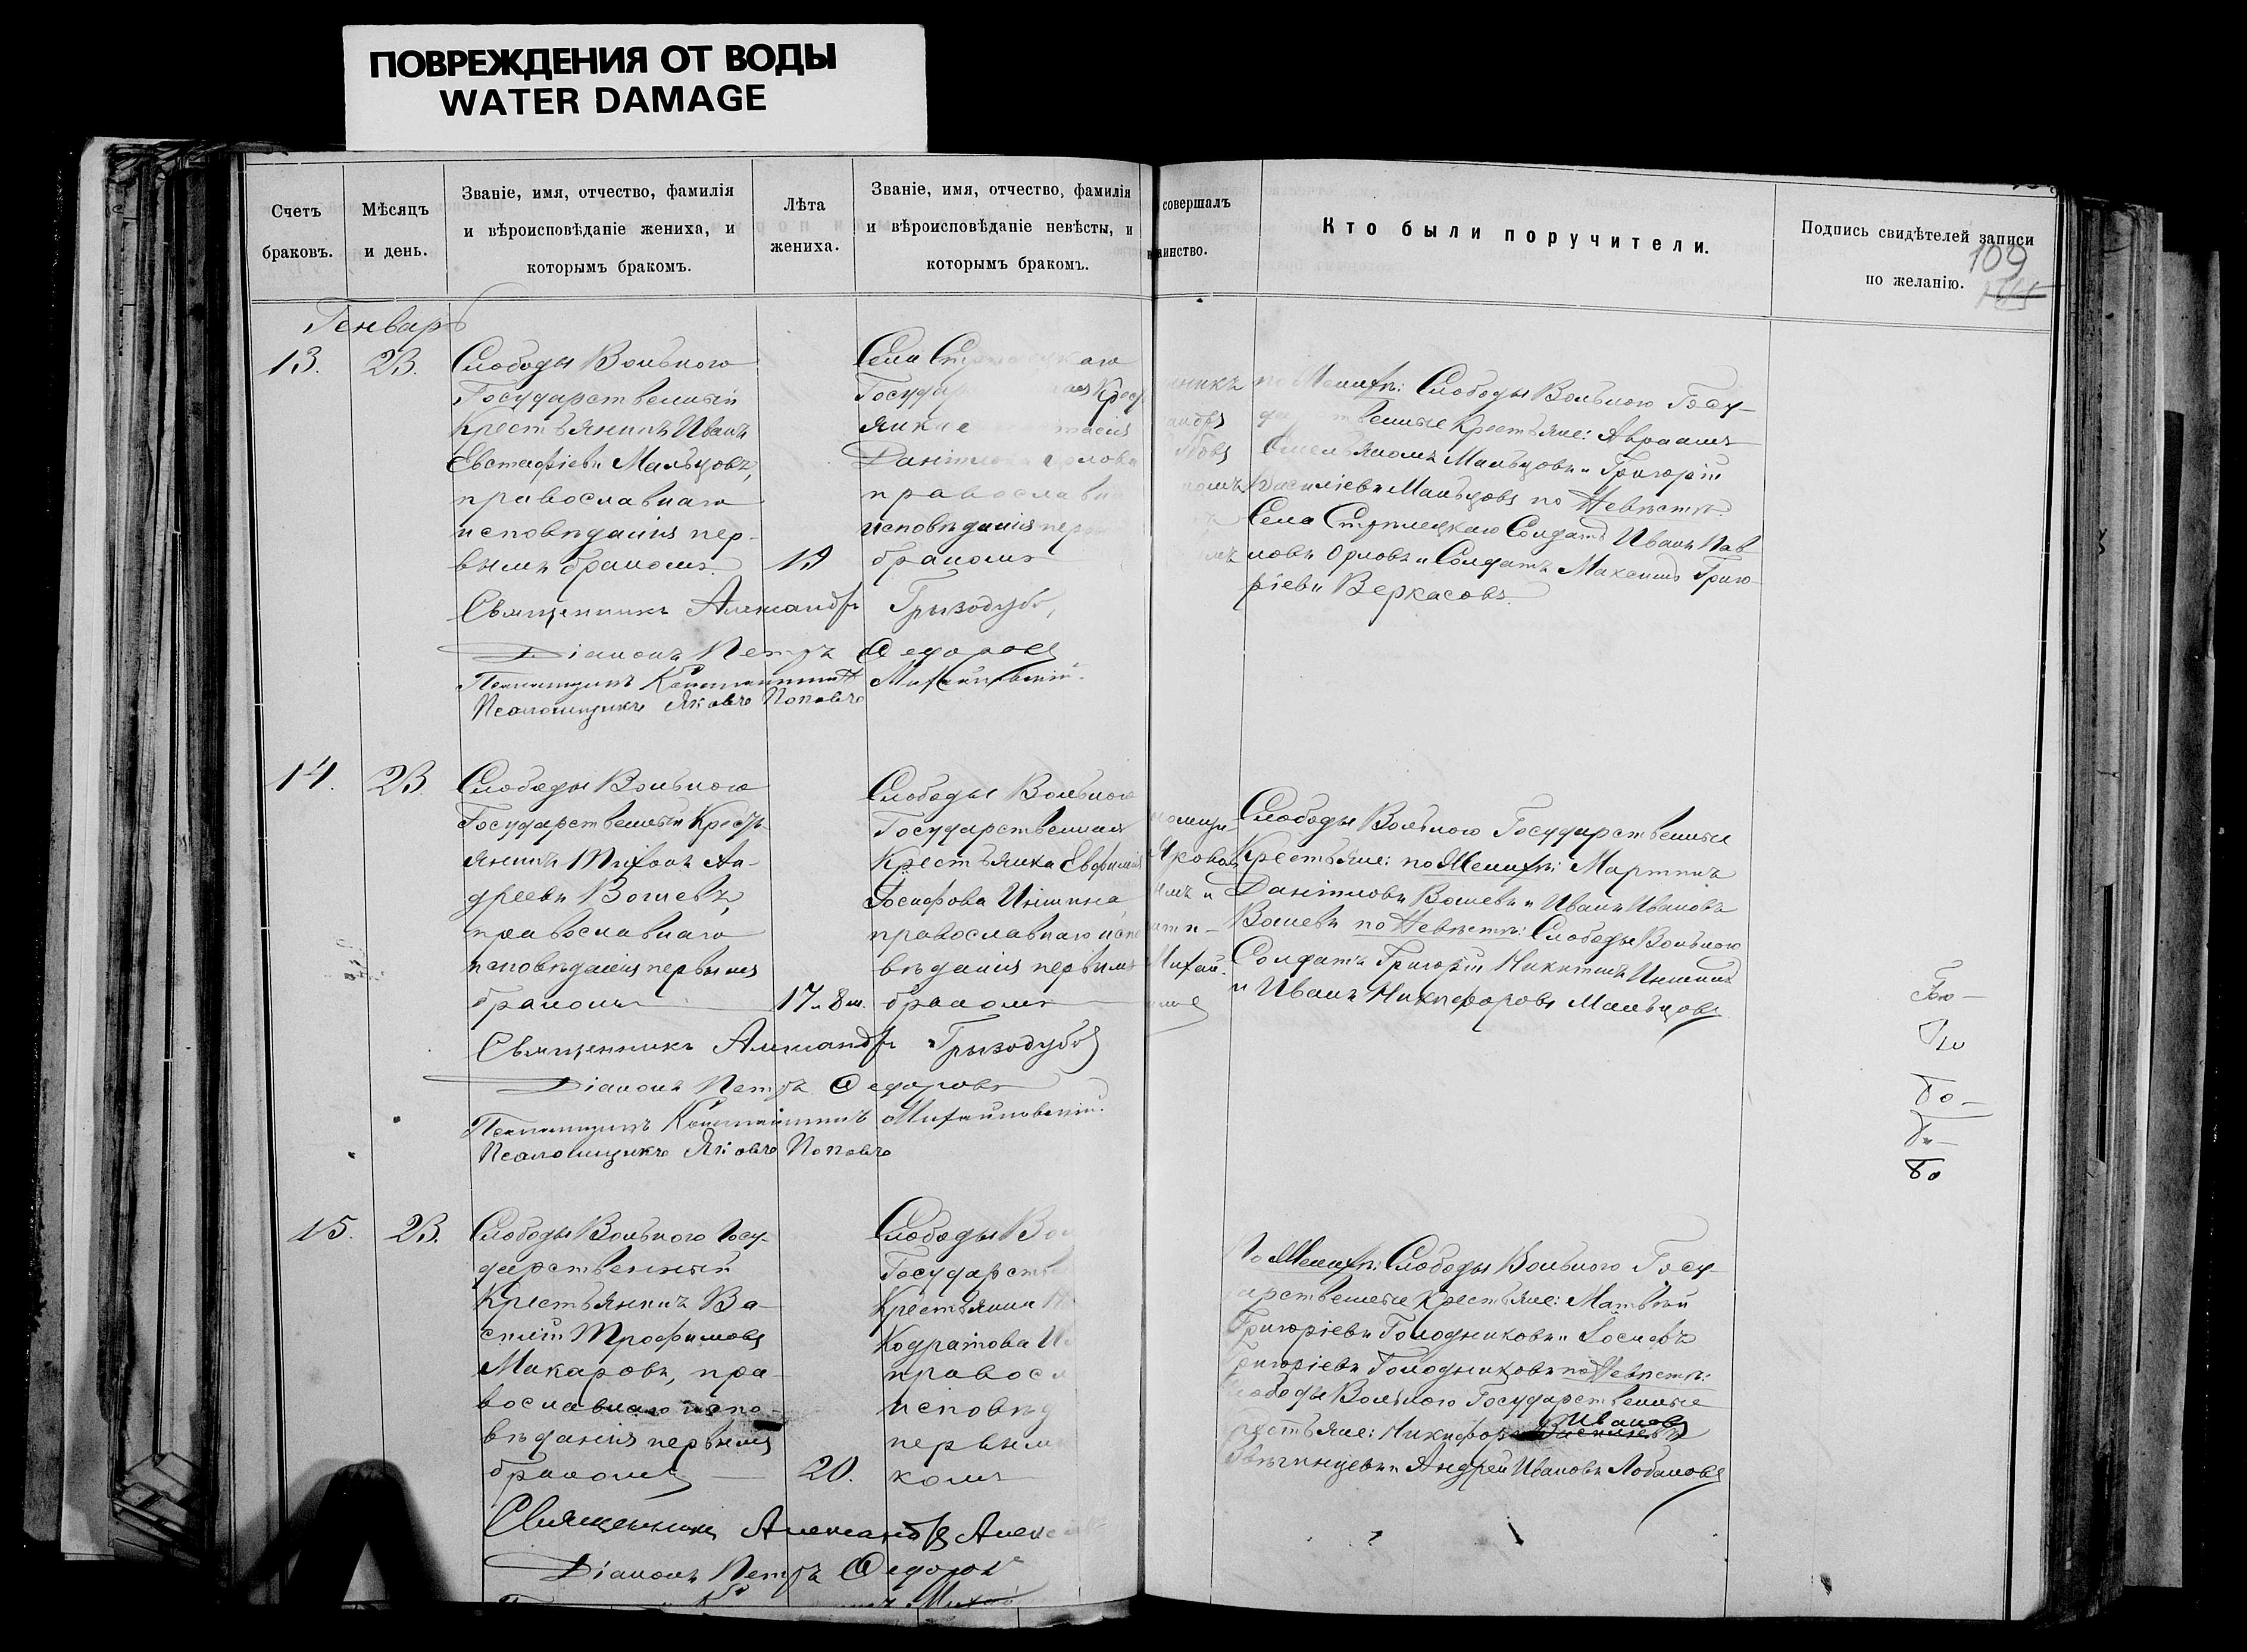 ПОВРЕЖДЕНИЯ ОТ ВОДЫ
WATER DAMAGE
Счетъ
браковъ.
Мѣсяцъ
и день.
Званіе, имя, отчество, фамилія
и вѣроисповѣданіе жениха, и
которымъ бракомъ.
Лѣта
жениха.
Званіе, имя, отчество, фамилія
и вѣроисповѣданіе невѣсты, и
которымъ бракомъ.
совершалъ
аинство.
Кто были поручители.
Подпись свидѣтелей записи
по желанію.
109
Генварь
13.
23.
Слободы Вольного
Государственный
Крестьянинъ Иванъ
Евстафіевъ Мальцовъ,
православнаго
исповѣданія пер-
вымъ бракомъ.
19
Села
Государ
Даніилова
православна
исповѣданія пер
бракомъ
по Женихѣ: Слободы Вольного Госу-
дарственные Крестьяне: Авраамъ
Емельяновъ Мальцовъ и Григорій
Василіевъ Мальцовъ по Невѣстѣ:
Села Стрѣлецкаго Солдатъ Иванъ Пав
ловъ Орловъ и Солдатъ Максимъ Григо-
ріевъ Веркасовъ.
Священникъ Александръ Грызодубъ,
Діаконъ Петръ Ѳедоровъ
Псаломщикъ Константинъ Михайловскій.
Псаломщикъ Яковъ Поповъ
14.
23.
Слободы Вольного
Государственный Кресть-
янинъ Тихонъ Ан-
дреевъ Вошевъ,
православнаго
исповѣданія первымъ
бракомъ
17 и 8 м.
Слободы Вольного
Государственная
Крестьянка Евфимія
Іосифова Иншина,
православнаго испо
вѣданія первымъ
бракомъ
Слободы Вольного Государственные
Крестьяне: по Женихѣ: Мартинъ
Даніиловъ Вошевъ и Иванъ Ивановъ
Вошевъ по Невѣстѣ: Слободы Вольного
Солдатъ Григорій Никитинъ Иншинъ
и Иванъ Никифоровъ Мальцовъ
Священникъ Александръ Грызодубъ
Діаконъ Петръ Ѳедоровъ
Псаломщикъ Константинъ Михайловскій.
Псаломщикъ Яковъ Поповъ
15.
23.
Слободы Вольного Госу-
дарственный
Крестьянинъ Ва-
силій Трофимовъ
Макаровъ, пра-
вославнаго испо-
вѣданія первымъ
бракомъ
20.
Слободы Вол
Государств
Крестьянка
Кодратова
правосл
исповѣд
первым
комъ
По Женихѣ: Слободы Вольного Госу-
дарственные Крестьяне: Матвѣй
Григоріевъ Голодниковъ и Іосифъ
Григоріевъ Голодниковъ по Невѣстѣ:
Слободы Вольного Государственные
рестьяне: Никифоръ Ивановъ
и Андрей Ивановъ Лобановъ
Священникъ Александръ Алекс
Діаконъ Петръ Ѳедоров